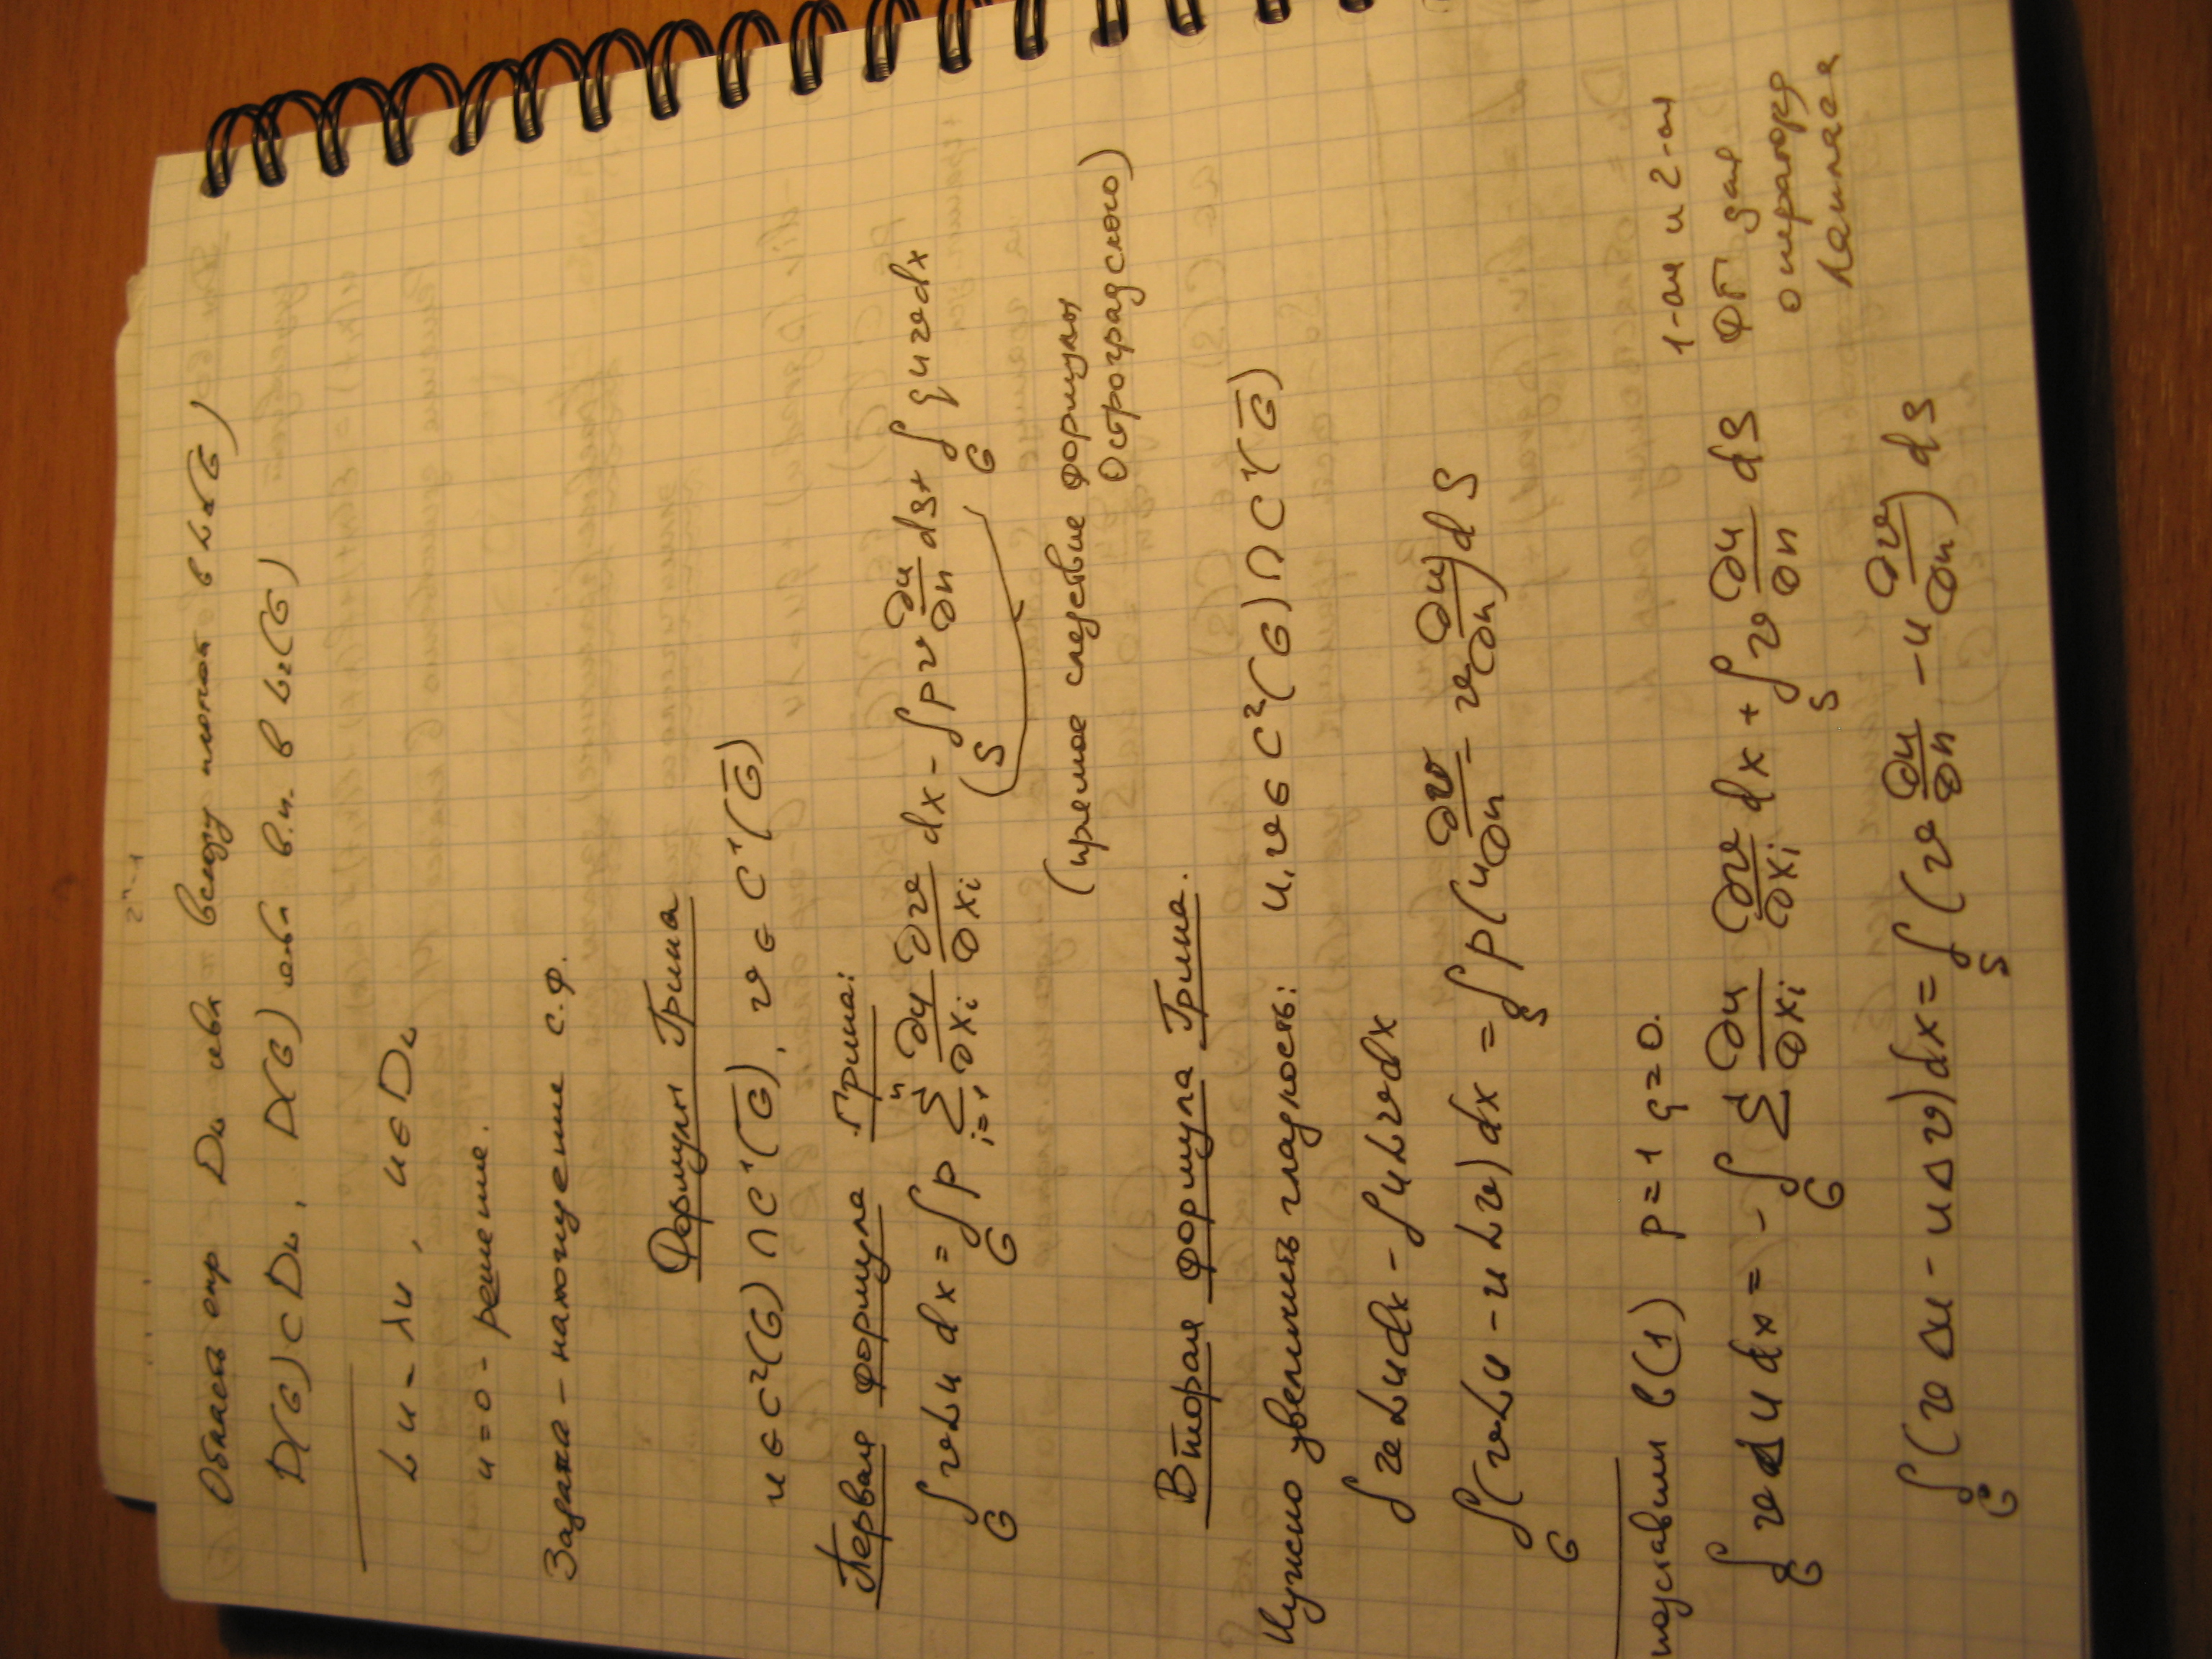 Область опр D_L явл всюду плотной в L₂(G)
D(G) ⊂ D_L, D(G) явл в.п. в L₂(G)
Lu = λu, u ∈ D_L
u=0 - решение.
Задача - нахождение с.ф.
Формулы Грина
u ∈ C²(G) ∩ C¹(G̅), v ∈ C¹(G̅)
Первая формула Грина:
∫_G vLu dx = ∫_G p ∑_{i=1}^n ∂u/∂x_i ∂v/∂x_i dx - ∫_S pv ∂u/∂n dS + ∫_G quvdx
(прямое следствие формулы
Остроградского)
Вторая формула Грина.
Нужно увеличить гладкость: u, v ∈ C²(G) ∩ C¹(G̅)
∫vLudx - ∫uLvdx
∫_G (vLu - uLv)dx = ∫_S p(u ∂v/∂n - v ∂u/∂n)dS
подставим в (1) p=1 q=0.
1-ая и 2-ая
∫_G vΔu dx = - ∫_G ∑ ∂u/∂x_i ∂v/∂x_i dx + ∫_S v ∂u/∂n dS ФГ для
оператора
Лапласа
∫_G (vΔu - uΔv)dx = ∫_S (v ∂u/∂n - u ∂v/∂n) dS